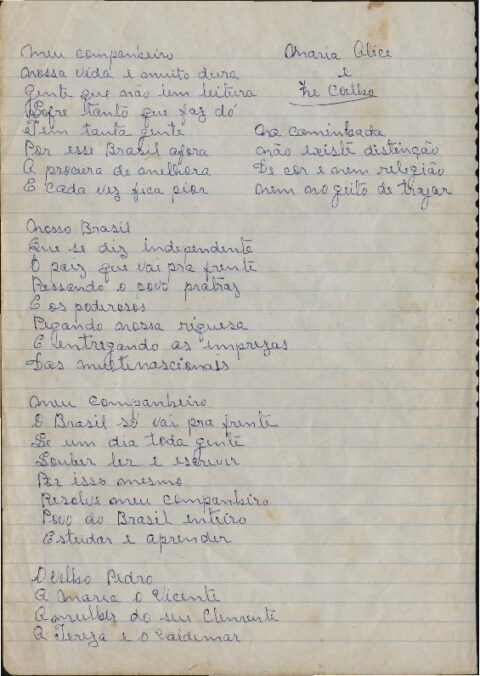 meu companheiro
nossa vida e muito dura
gente que não tem leitura
Sofre tanto que faz dó
Tem tanta gente
Por esse Brasil afora
A procura de melhora
E cada vez fica pior
Maria Alice
e
Zre Coelho
na caminhada
não existe distinção
De cor e nem religião
nem no geito de trajar
nosso Brasil
Que se diz independente
O paiz que vai pra frente
Passando o povo prátraz
E os poderosos
Pegando nossa riguesa
E entregando as imprezas
Das multinascionais
meu companheiro
O Brasil só vai pra frente
Se um dia toda gente
Souber ler e escrevir
Por isso mesmo
Resolve meu companheiro
Povo do Brasil inteiro
Estudar e aprender
O velho Pedro
A Maria o Vicente
A mulher do seu Clemente
A Tereza e o Valdemar